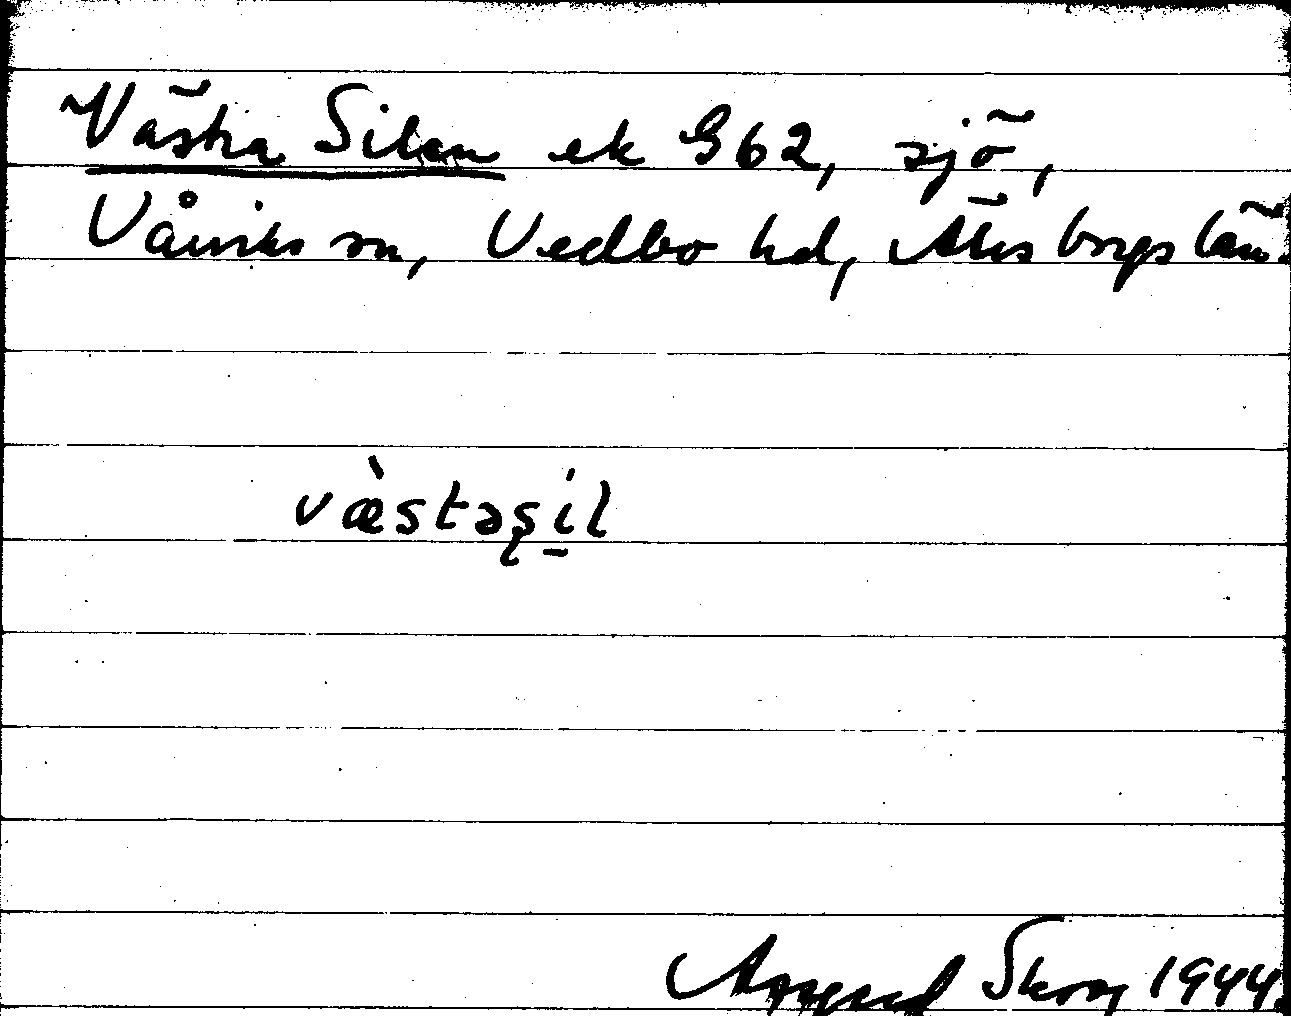 Västra Silen ek G62, sjö,
Vårviks sn, Vedbo hd, Älvsborgs län.
væ̀stəʂi̠l
Assar Skog 1944.